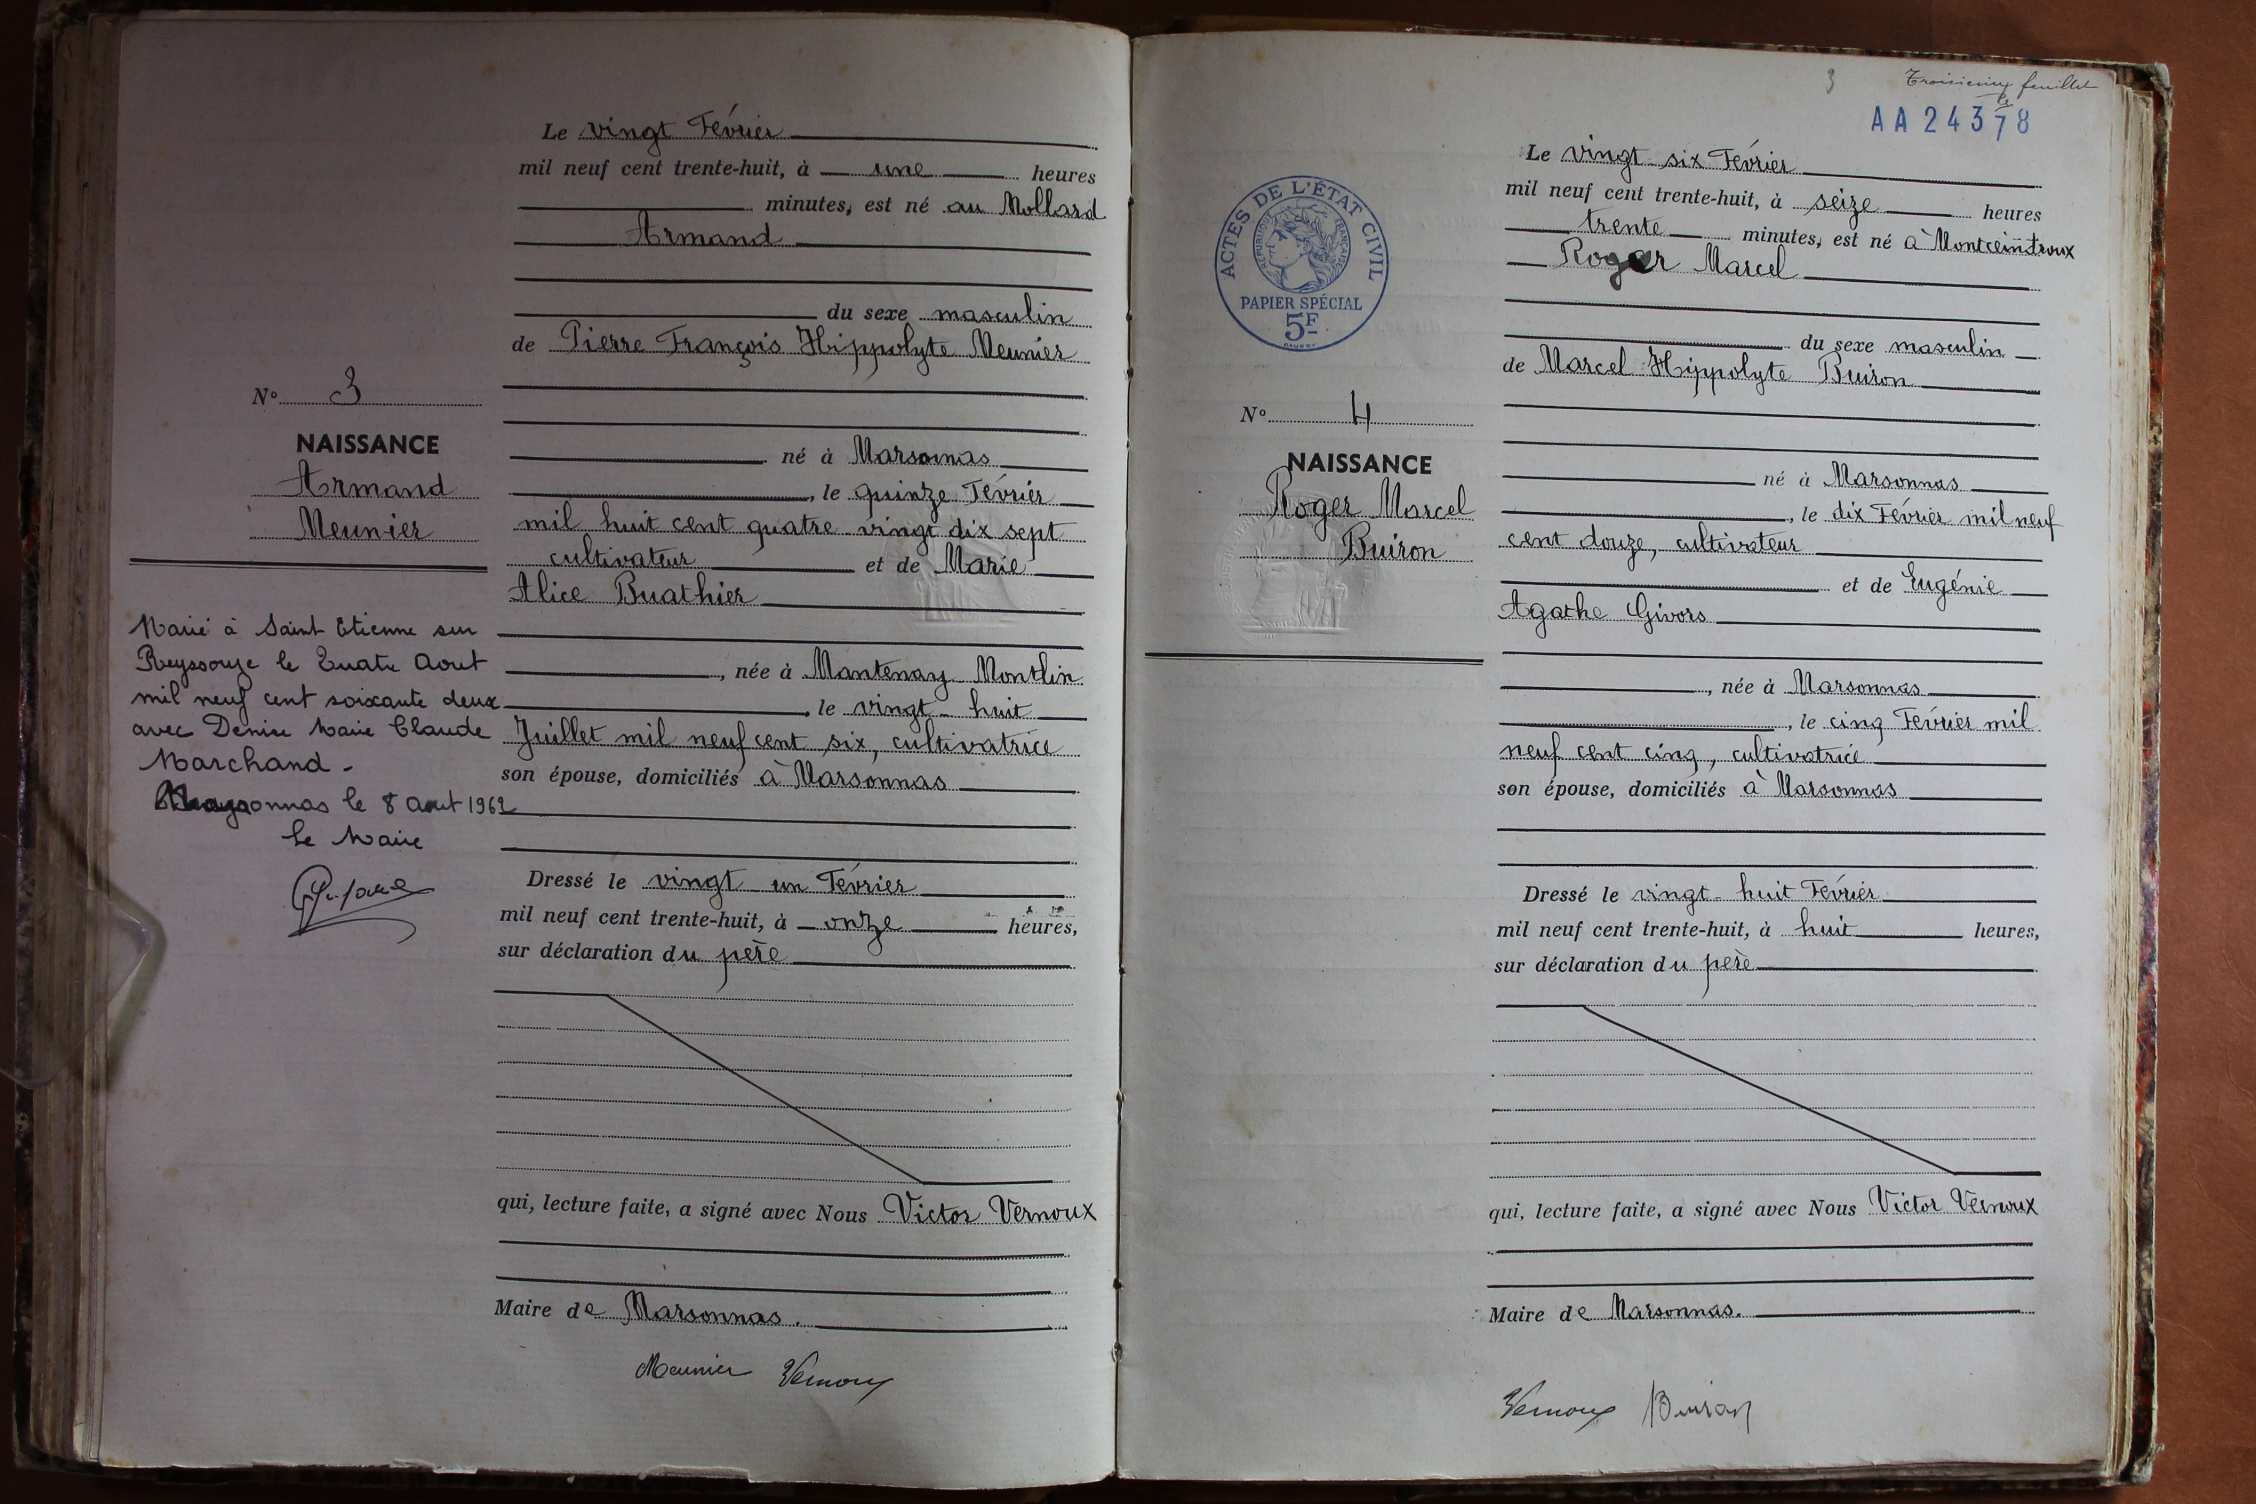 Le vingt Février
mil neuf cent trente-huit, à une heures
minutes, est né au Mollard
Armand
du sexe masculin
de Pierre François Hippolyte Meunier
né à Marsonnas
, le quinze Février
mil huit cent quatre vingt dix sept
cultivateur et de Marie
Alice Buathier
, née à Mantenay Montlin
, le vingt-huit
Juillet mil neuf cent six, cultivatrice
son épouse, domiciliés à Marsonnas
Dressé le vingt-un Février
mil neuf cent trente-huit, à onze heures,
sur déclaration du père
qui, lecture faite, a signé avec Nous Victor Vernoux
Maire de Marsonnas.
Meunier Vernoux
No 3
NAISSANCE
Armand
Meunier
Marié à Saint Etienne sur
Reyssouze le Quatre Aout
mil neuf cent soixante deux
avec Denise Marie Claude
Marchand -
le 8 aout 1962
Le Maire
3 Troisième feuillet
AA 24378
ACTES DE L'ÉTAT CIVIL
RÉPUBLIQUE FRANÇAISE
PAPIER SPÉCIAL
5F
No 4
NAISSANCE
Roger Marcel
Buiron
Le vingt-six Février
mil neuf cent trente-huit, à seize heures
trente minutes, est né à
Roger Marcel
du sexe masculin
de Marcel Hippolyte Buiron
né à Marsonnas
, le dix Février mil neuf
cent douze, cultivateur
et de Eugénie
Agathe Givors
, née à Marsonnas
, le cinq Février mil
neuf cent cinq, cultivatrice
son épouse, domiciliés à Marsonnas
Dressé le vingt-huit Février
mil neuf cent trente-huit, à huit heures,
sur déclaration du père
qui, lecture faite, a signé avec Nous Victor Vernoux
Maire de Marsonnas.
Vernoux Buiron